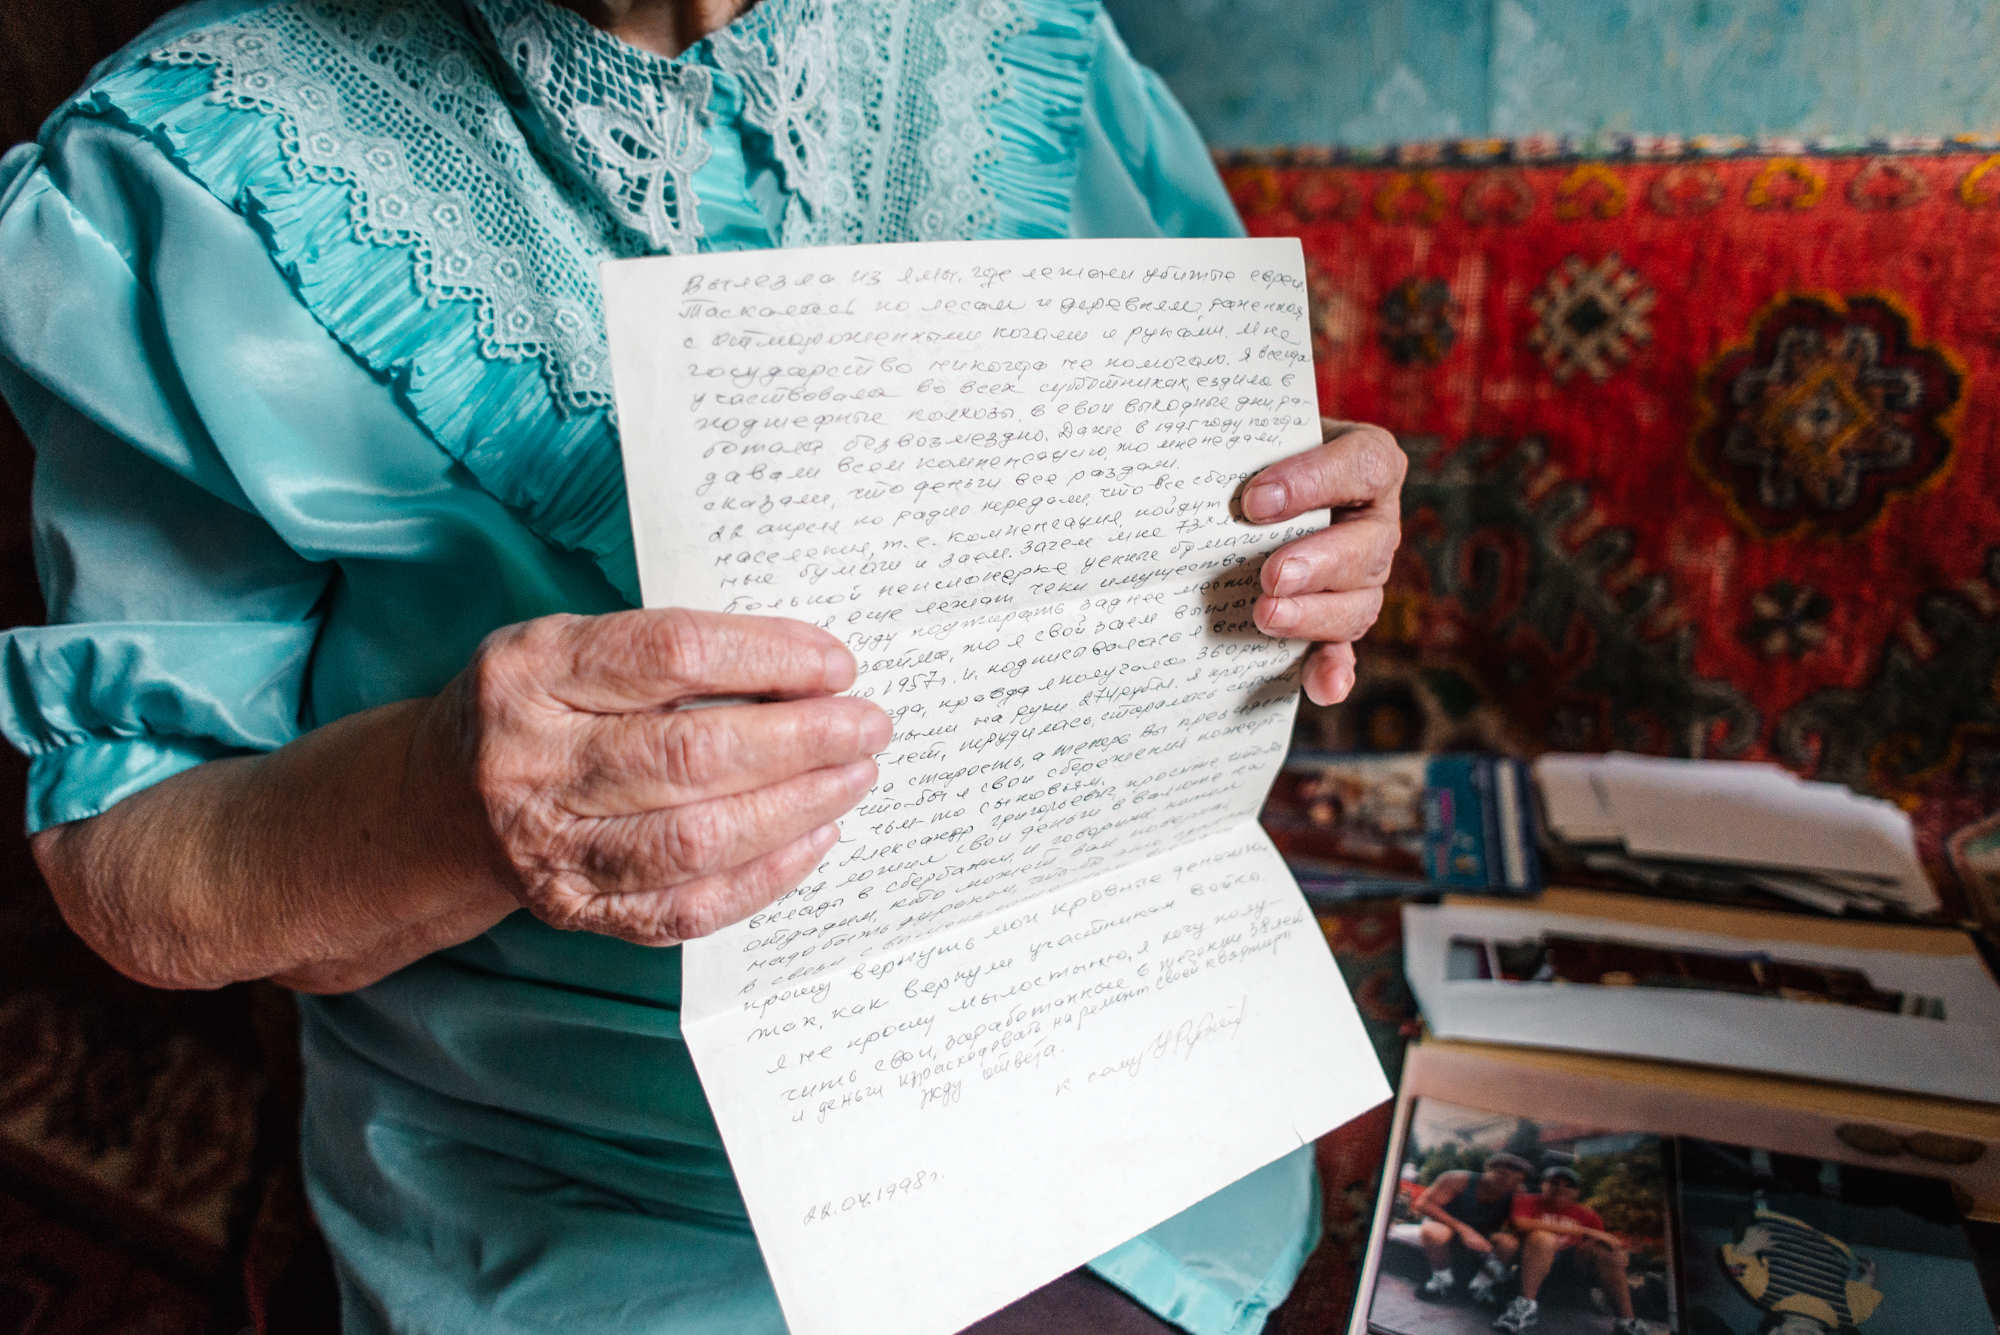 Вылезла из ямы, где лежали убитые евреи.
Таскалась по лесам и деревням, раненная
с отмороженными ногами и руками. Мне
государство никогда не помогало. Я всегда
участвовала во всех субботниках, ездила в
подшефные колхозы в свои выходные дни, ра-
ботала безвозмездно. Даже в 1995 году когда
давали всем компенсацию, то мне не дали,
сказали, что деньги все раздали.
22 апреля по радио передали, что все сбере
населения, т.е. компенсация, пойдут
ные бумаги и заем. Зачем мне 73х
больной пенсионерке ценные бумаги и
еще лежат чеки имущества.
буду подтирать заднее место,
займа, то я свой заем
по 1957 г. и подписывалась я
правда я получала 360 руб в
на руки 274 рубля. Я
лет, трудилась, старалась
на старость, а теперь Вы
что-бы я свои сбережения пожерт-
чьим-то сыновьям.
Александр Григорьевич,
ложил свои деньги в
вклады в сбербанки, и говорили
отдадим, кто может вам поверить,
надо быть дураком, что-бы это
в свои
прошу вернуть мои кровные денежки,
так, как вернули участникам войны.
Я не прошу милостыню, я хочу полу-
чить свои, заработанные в течении 38 лет
и деньги израсходовать на ремонт своей квартиры
Жду ответа.
К сему
22.04.1998 г.